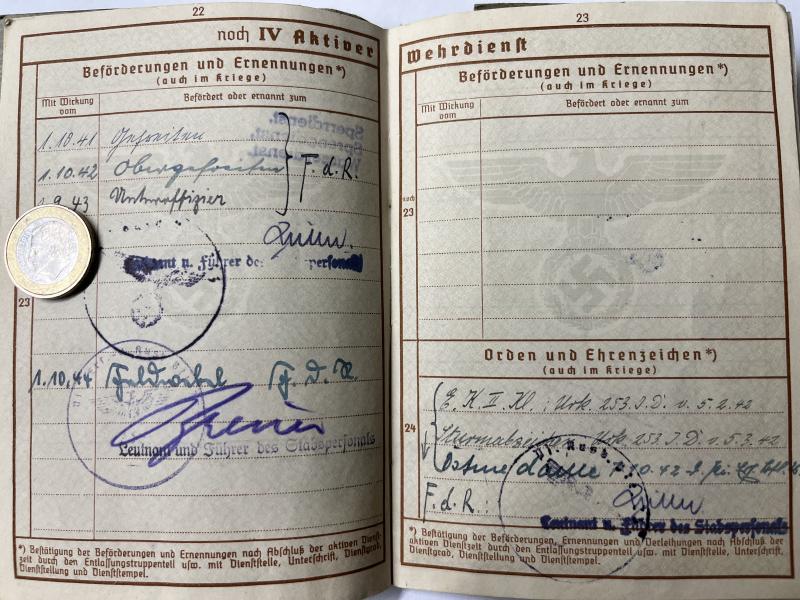 22
noch IV Aktiver
Beförderungen und Ernennungen*)
(auch im Kriege)
Mit Wirkung vom
Befördert oder ernannt zum
1.10.41 Gefreiten
1.10.42 Obergefreiten
1.9.43 Unteroffizier
F. d. R.
u. Führer des
personals
23
1.10.44 Feldwebel F. d. R.
Leutnant und Führer des Stabspersonals
*) Bestätigung der Beförderungen und Ernennungen nach Abschluß der aktiven Dienst-
zeit durch den Entlassungstruppenteil usw. mit Dienststelle, Unterschrift, Dienstgrad,
Dienststellung und Dienststempel.
23
Wehrdienst
Beförderungen und Ernennungen*)
(auch im Kriege)
Mit Wirkung vom
Befördert oder ernannt zum
noch 23
Orden und Ehrenzeichen*)
(auch im Kriege)
24
E. K. II. Kl.: Urk. 253. I.D. v. 5.2.42
Sturmabzeichen: Urk. 253. I.D. v. 5.3.42
F. d. R.:
Leutnant u. Führer des Stabspersonals
*) Bestätigung der Beförderungen, Ernennungen und Verleihungen nach Abschluß der
aktiven Dienstzeit durch den Entlassungstruppenteil usw. mit Dienststelle, Unterschrift,
Dienstgrad, Dienststellung und Dienststempel.